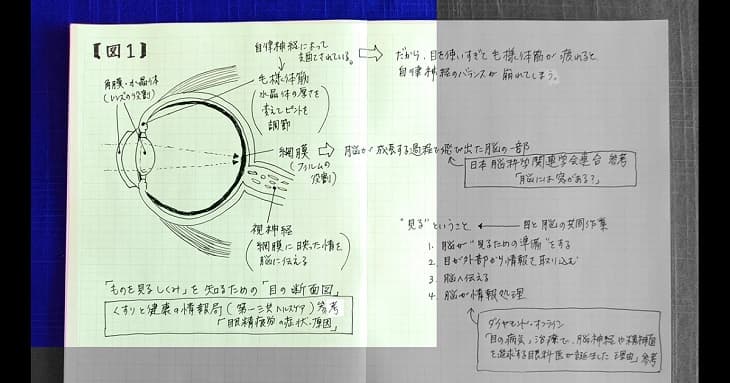 【図1】
自律神経によって
支配されている。
だから、目を使いすぎて毛様体筋が疲れると
自律神経のバランスが崩れてしまう。
角膜・水晶体
(レンズの役割)
毛様体筋
(水晶体の厚さを
変えてピントを
調節)
網膜
(フィルムの
役割)
脳が成長する過程で飛び出た脳の一部
日本脳科学関連学会連合 参考
「脳には窓がある?」
視神経
(網膜に映った情を
脳に伝える)
"見る"ということ
目と脳の共同作業
1. 脳が"見るための準備"をする
2. 目が外部から情報を取り込む
3. 脳へ伝える
4. 脳が情報処理
「ものを見るしくみ」を知るための「目の断面図」
くすりと健康の情報局(第一三共ヘルスケア)参考
「眼精疲労の症状・原因」
ダイヤモンド・オンライン
「目の病気」治療で、脳神経や精神面
を追求する眼科医が誕生した理由」参考